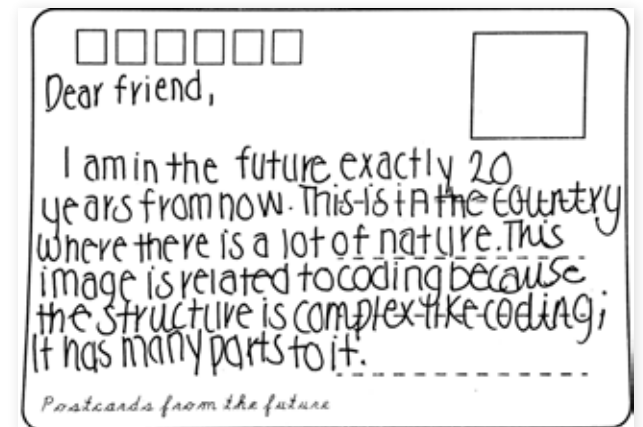 Dear friend,
I am in the future exactly 20
years from now. This is in the country
where there is a lot of nature. This
image is related to coding because
the structure is complex like coding;
It has many parts to it.
Postcards from the future